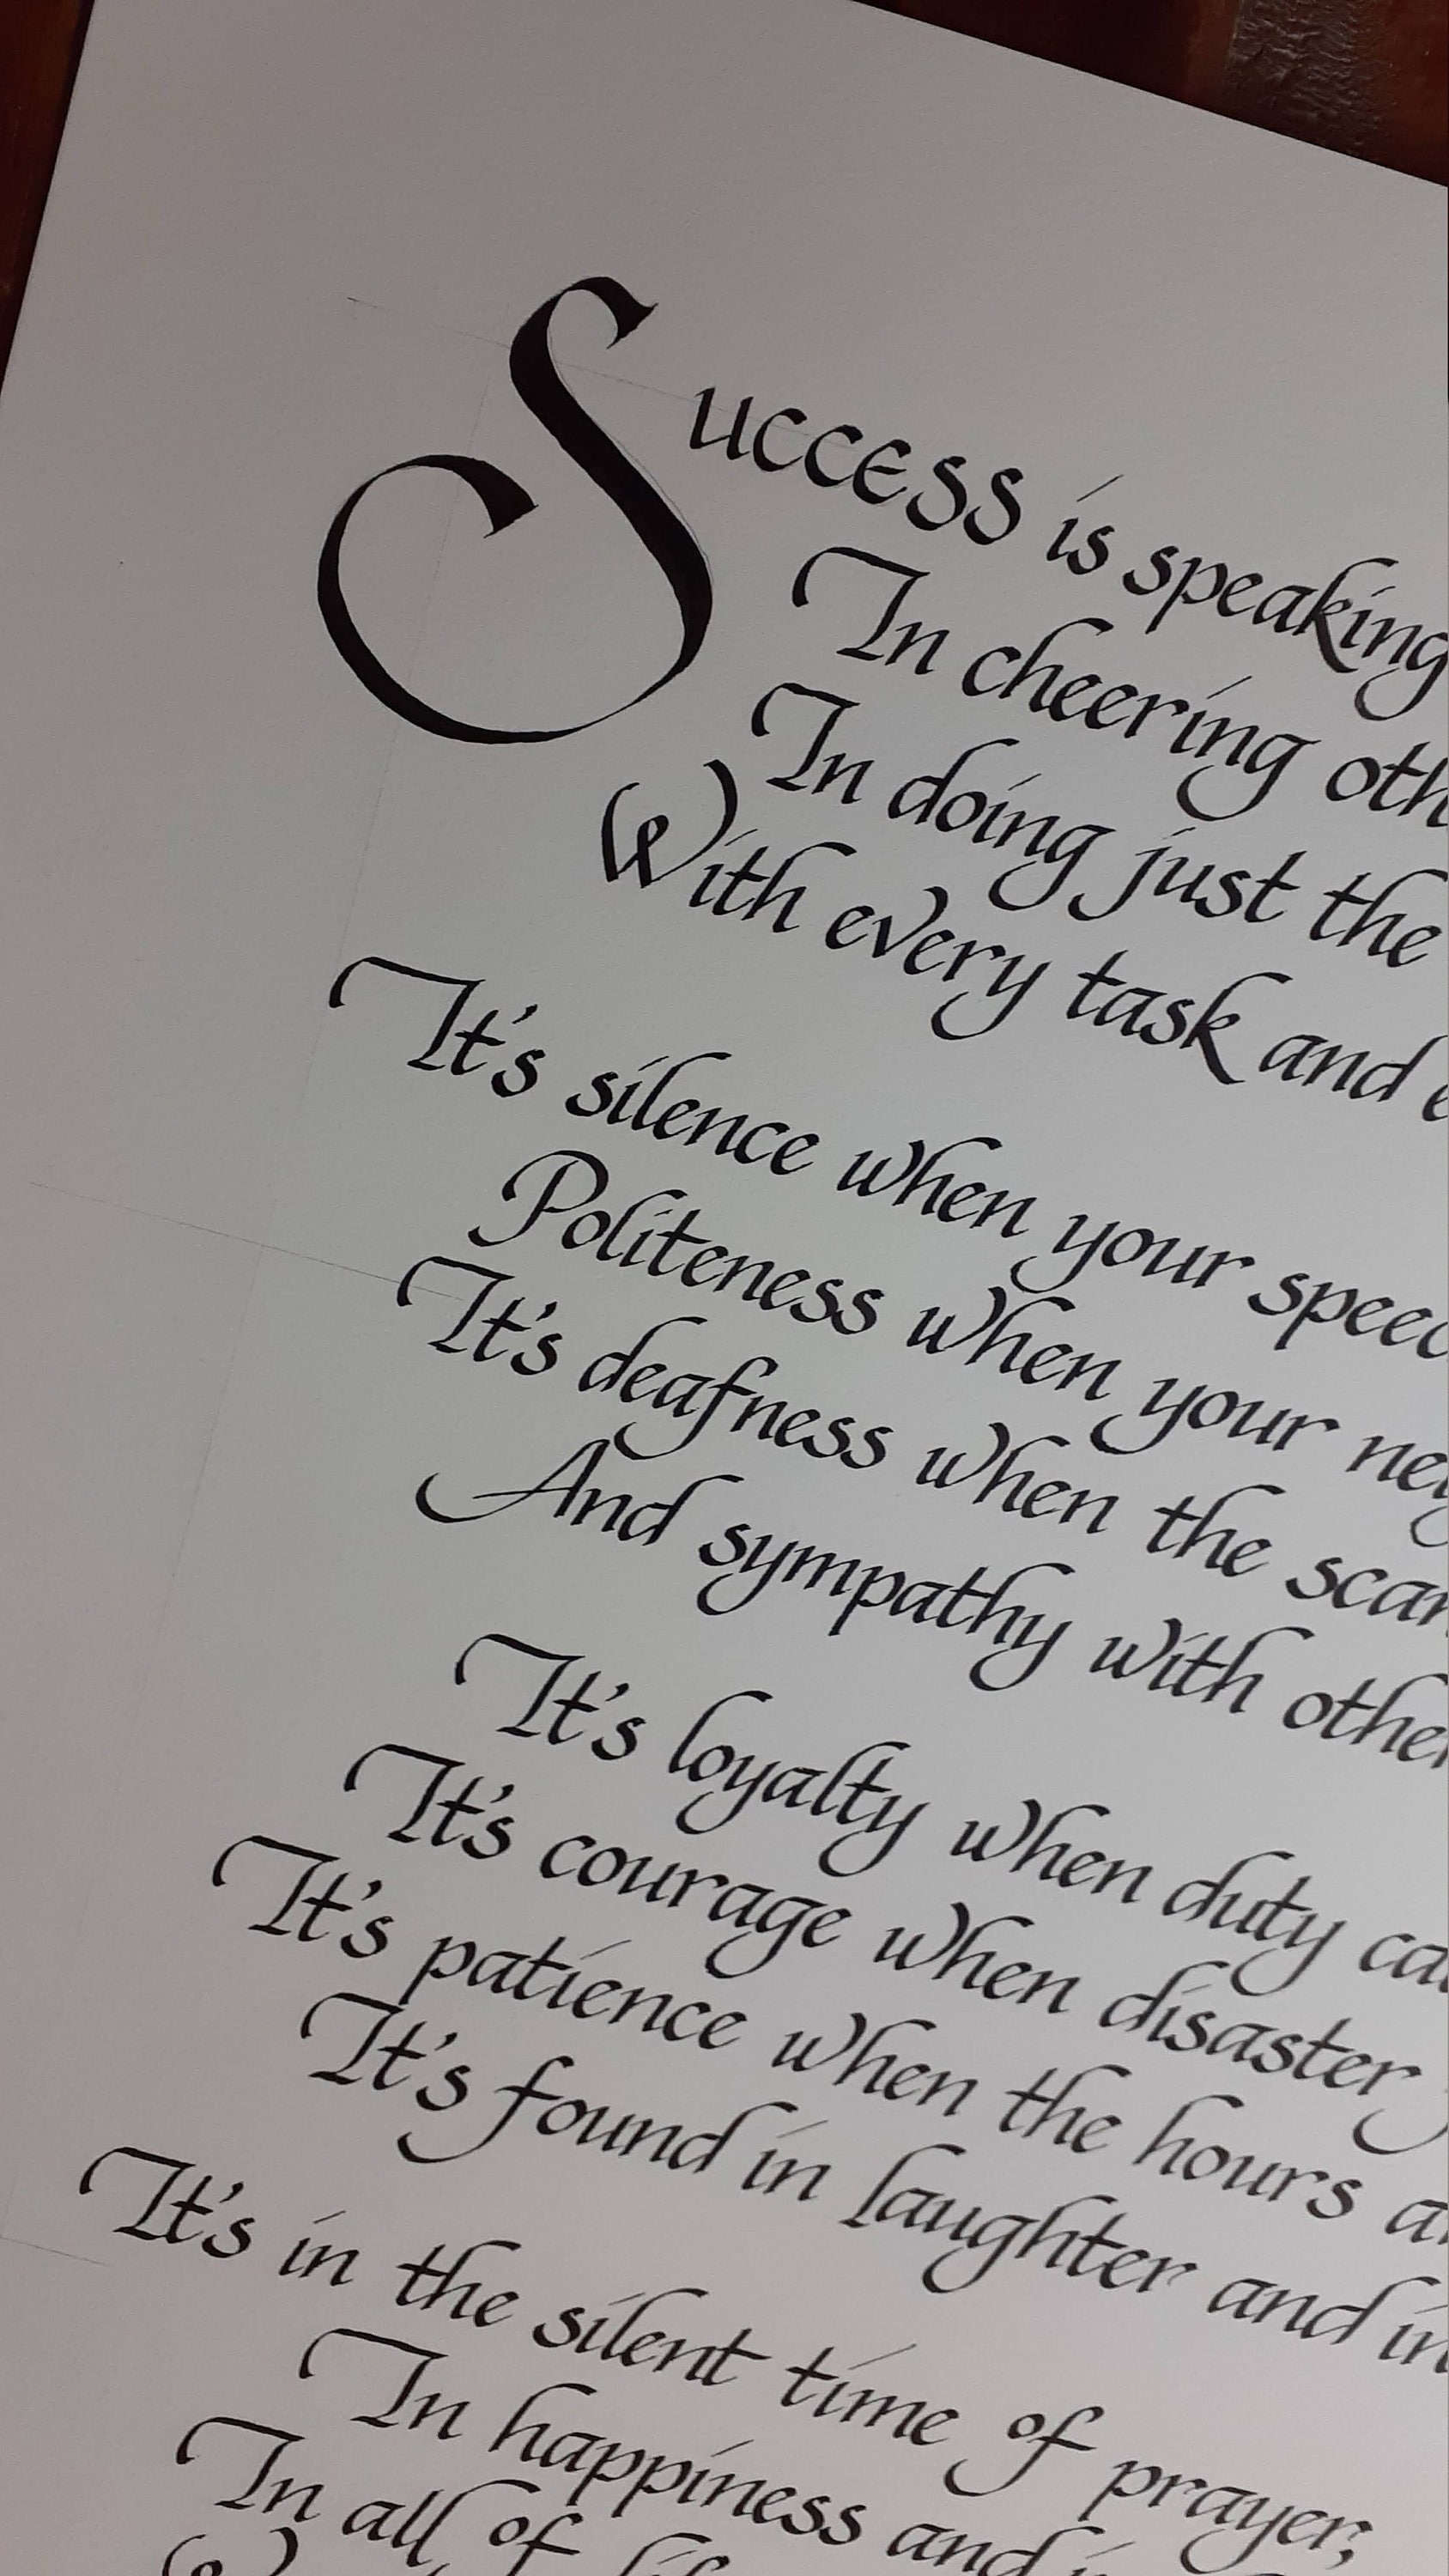 Success is speaking
In cheering oth
In doing just the
With every task and e
It's silence when your speec
Politeness when your nei
It's deafness when the scan
And sympathy with other
It's loyalty when duty ca
It's courage when disaster
It's patience when the hours a
It's found in laughter and in
It's in the silent time of prayer,
In happiness and i
In all of lif